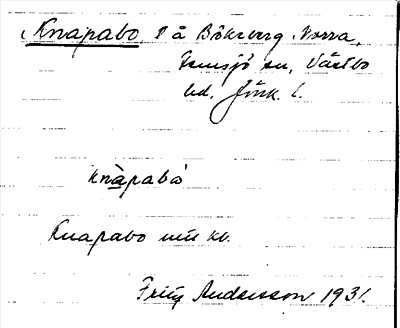 Knapabo, t å Bökeberg Norra,
Femsjö sn, Västbo
hd. Jönk. l.
knàpabo
Knapabo utt kb.
Frits Andersson 1931.